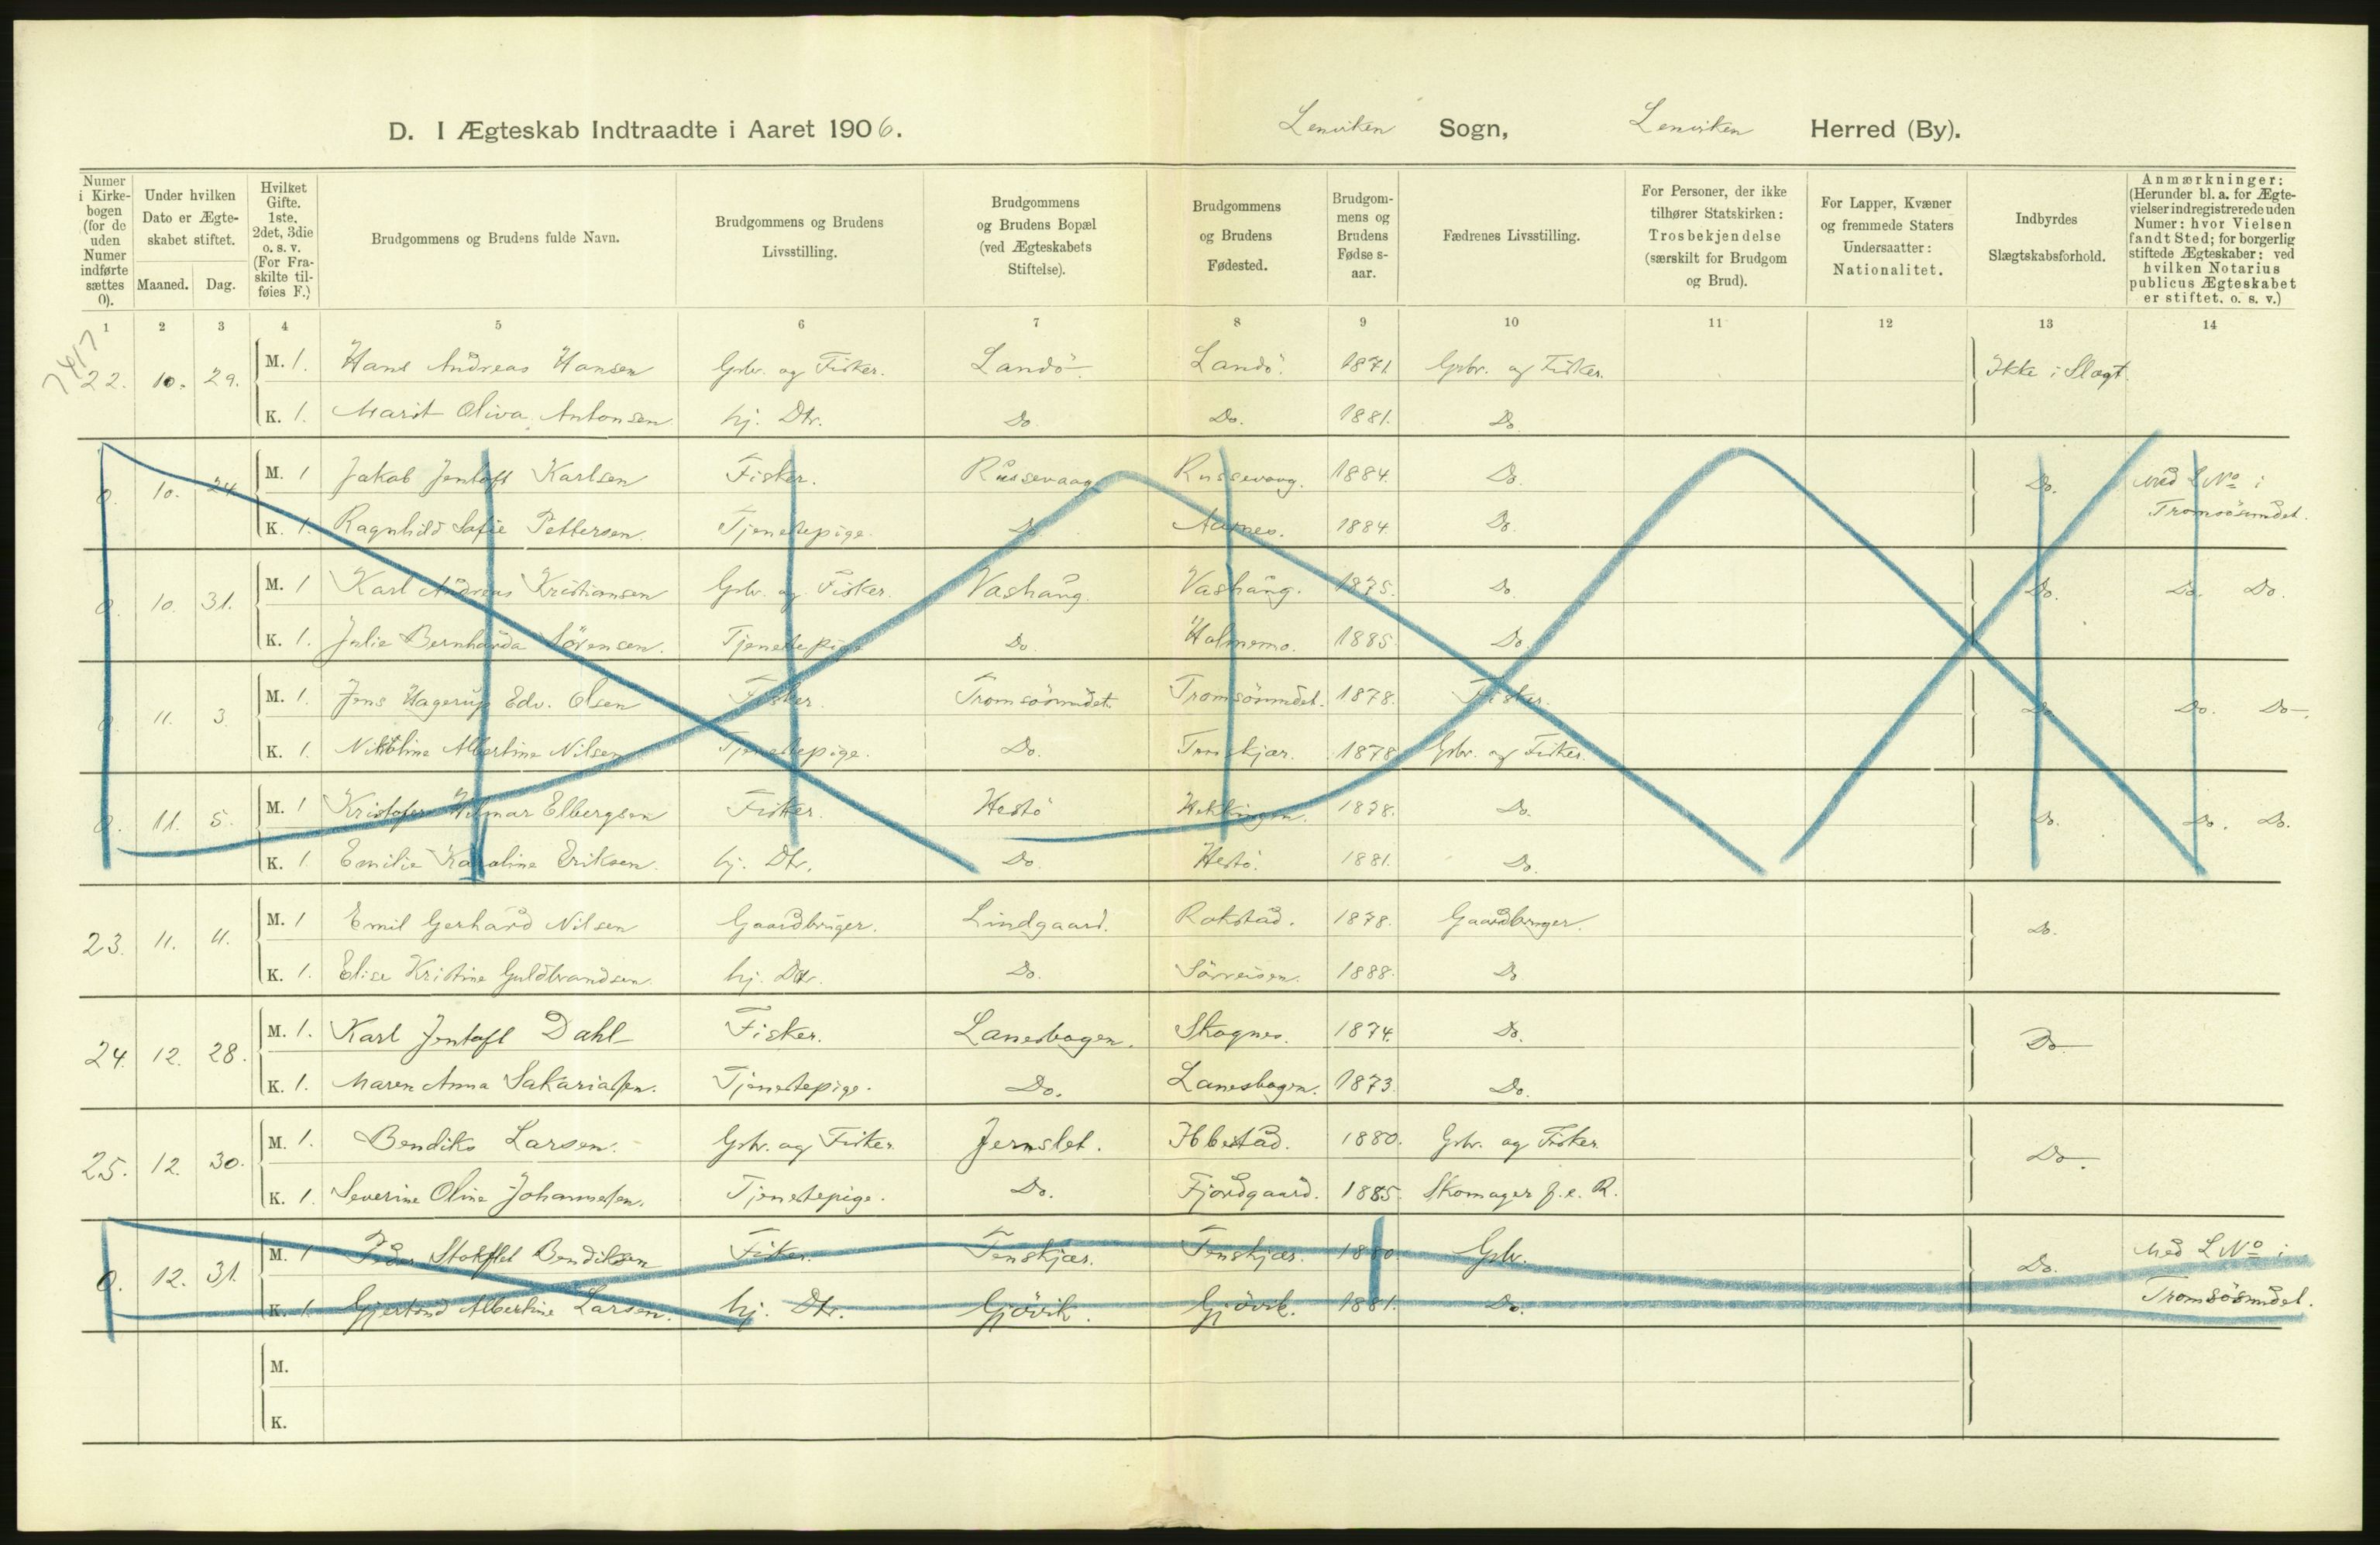 D. I Ægteskab Indtraadte i Aaret 1906. Lenviken Sogn, Lenviken Herred (By).
Numer i Kirkebogen (for de uden Numer indførte sættes 0).
Under hvilken Dato er Ægteskabet stiftet.
Maaned. Dag.
Hvilket Gifte. 1ste, 2det, 3die o. s. v. (For Fraskilte tilføies F.)
Brudgommens og Brudens fulde Navn.
Brudgommens og Brudens Livsstilling.
Brudgommens og Brudens Bopæl (ved Ægteskabets Stiftelse).
Brudgommens og Brudens Fødested.
Brudgommens og Brudens Fødse s-aar.
Fædrenes Livsstilling.
For Personer, der ikke tilhører Statskirken: Trosbekjendelse (særskilt for Brudgom og Brud).
For Lapper, Kvæner og fremmede Staters Undersaatter: Nationalitet.
Indbyrdes Slægtskabsforhold.
Anmærkninger: (Herunder bl. a. for Ægtevielser indregistrerede uden Numer: hvor Vielsen fandt Sted; for borgerlig stiftede Ægteskaber: ved hvilken Notarius publicus Ægteskabet er stiftet, o. s. v.)
1 2 3 4 5 6 7 8 9 10 11 12 13 14
7417
22. 10. 29. M. 1. Hans Andreas Hansen Gbr. og Fisker. Landö. Landö. 1871 Gbr. og Fisker. Ikke i Slægt
K. 1. Marit Oliva Antonsen. hj. Dtr. Do Do. 1881. Do.
0. 10. 24 M. 1 Jakob Jentoft Karlsen Fisker. Russevaag Russevaag. 1884. Do. Do. med L No i
K. 1. Ragnhild Sofie Pettersen. Tjenestepige. Do Aarnes. 1884. Do. Tromsösundet.
0. 10. 31. M. 1 Karl Andreas Kristiansen Gbr. og Fisker. Vashaug. Vashaug. 1875. Do. Do. Do. Do.
K. 1. Julie Bernharda Sörensen. Tjenestepige Do. Holmemo. 1885. Do.
0. 11. 3. M. 1. Jens Hagerup Edv. Olsen Fisker. Tromsösundet. Tromsösundet. 1878. Fisker. Do Do. Do.
K. 1. Nikoline Albertine Nilsen Tjenestepige. Do. 1878 Gbr. og Fisker.
0. 11. 5. M. 1 Kristofer Hilmar Elbergsen Fisker. Hestö Hekkingen. 1878. Do. Do. Do. Do.
K. 1 Emilie Karoline Eriksen. hj. Dtr. Do Hestö. 1881. Do.
23. 11. 11. M. 1 Emil Gerhard Nilsen Gaardbruger. Lindgaard. Rokstad. 1878. Gaardbruger. Do.
K. 1. Elise Kristine Guldbrandsen. hj. Dtr. Do. Sörreisen. 1888. Do
24. 12. 28. M. 1. Karl Jentoft Dahl Fisker. Lanesbogen. Skognes. 1874. Do. Do
K. 1. Maren Anna Sakariassen. Tjenestepige. Do. Lanesbogen. 1873. Do.
25. 12. 30. M. 1. Bendiks Larsen. Gbr. og Fisker Jernslet. Ibbestad. 1880. Gbr. og Fisker Do.
K. 1. Severine Oline Johannessen. Tjenestepige. Do. Fjordgaard. 1885. Skomager f. e. R.
0. 12. 31. M. 1 Peder Stokflet Bendiksen Fisker. Tenskjær. Tenskjær. 1880 Gbr. Do. Med L No i
K. 1. Gjertrud Albertine Larsen. hj. Dtr. Gjövik. Gjövik. 1881. Do. Tromsösundet.
M.
K.